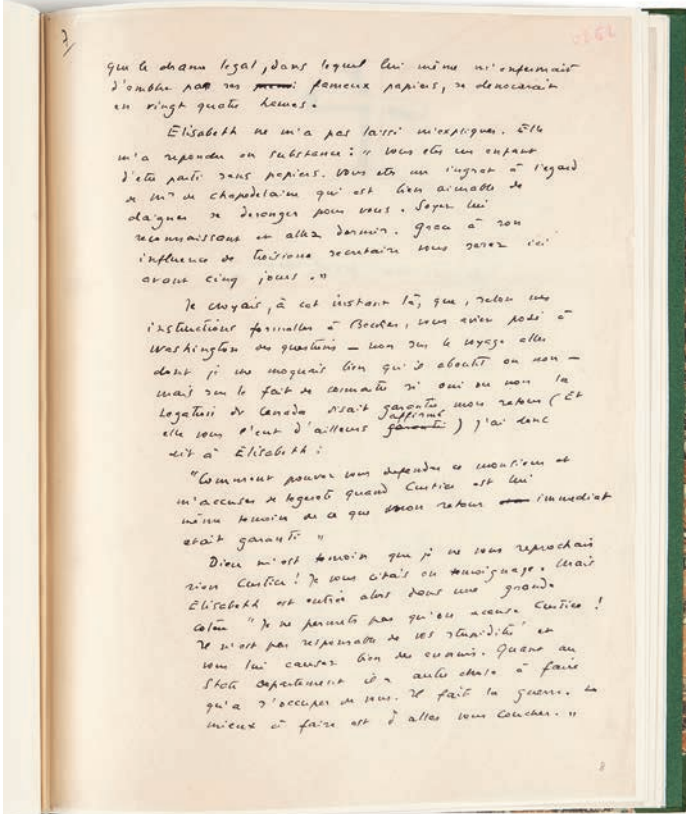 7
que le drame legal, dans lequel lui même m'enfermait
d'emblée par ses fameux papiers, se denouerait
en vingt quatre heures.
Elisabeth ne m'a pas laissé m'expliquer. Elle
m'a repondu en substance : " vous etes un enfant
d'etre parti sans papiers. Vous etes un ingrat à l'egard
de Mr de Chapedelaine qui est bien aimable de
daigner se deranger pour vous. Soyez lui
reconnaissant et allez dormir. Grace à son
influence de troisieme secretaire vous serez ici
avant cinq jours. "
Je croyais, à cet instant là, que, selon mes
instructions formelles à Becker, vous aviez posé à
Washington des questions – non sur le voyage aller
dont je me moquais bien qu'il aboutit ou non –
mais sur le fait de connaitre si oui ou non la
Legation du Canada disait garantir mon retour (Et
elle vous l'eut d'ailleurs affirmé garanti) j'ai donc
dit à Elisabeth :
"Comment pouvez vous defendre ce monsieur et
m'accuser de legereté quand Curtice est lui
même temoin de ce que mon retour immediat
etait garanti "
Dieu m'est temoin que je ne vous reprochais
rien Curtice ! Je vous citais en temoignage. Mais
Elisabeth est entrée alors dans une grande
colère "Je ne permets pas qu'on accuse Curtice !
Il n'est pas responsable de vos stupidités et
vous lui causez bien des ennuis. Quant au
State Departement il a autre chose à faire
qu'a s'occuper de vous. Il fait la guerre. Le
mieux à faire est d'aller vous coucher. "
8